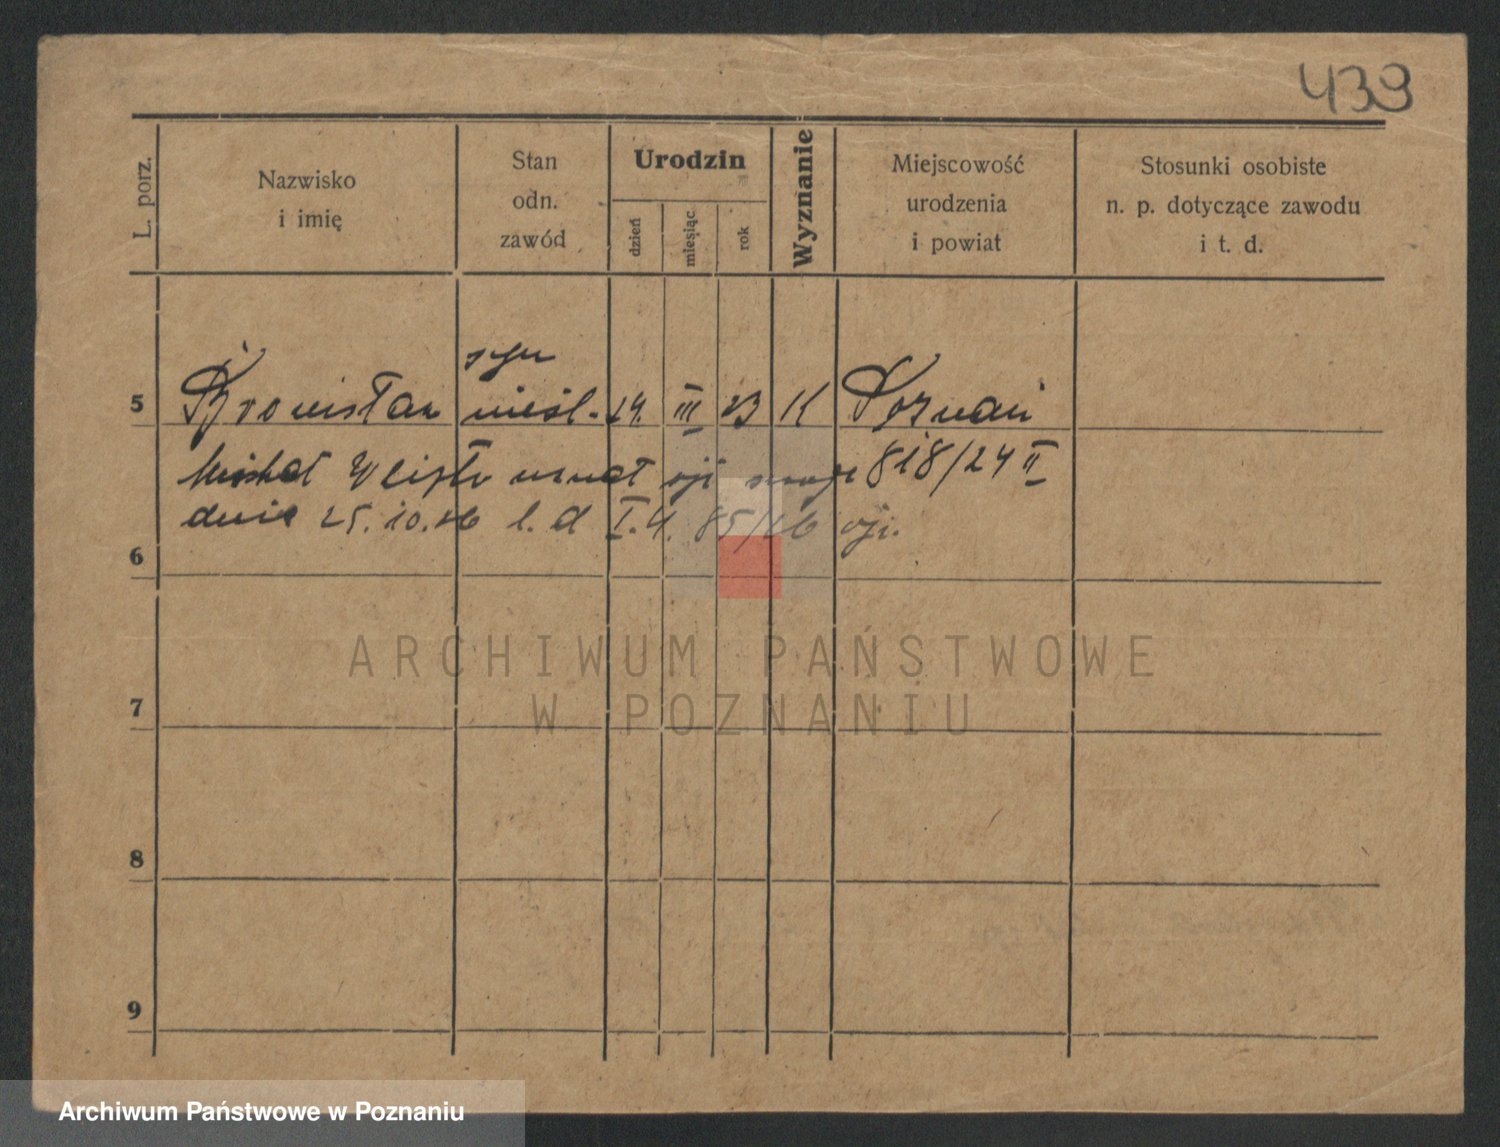 439
L. porz.
Nazwisko
i imię
Stan
odn.
zawód
Urodzin
dzień
miesiąc
rok
Wyznanie
Miejscowość
urodzenia
i powiat
Stosunki osobiste
n. p. dotyczące zawodu
i t. d.
syn
5 Bronisław nieśl. 24. III 23 K Poznań
Michał uznał 818/24 II
dnia 25.10.26 l. d I. U. 85/26
6
7
8
9
ARCHIWUM PAŃSTWOWE
W POZNANIU
Archiwum Państwowe w Poznaniu